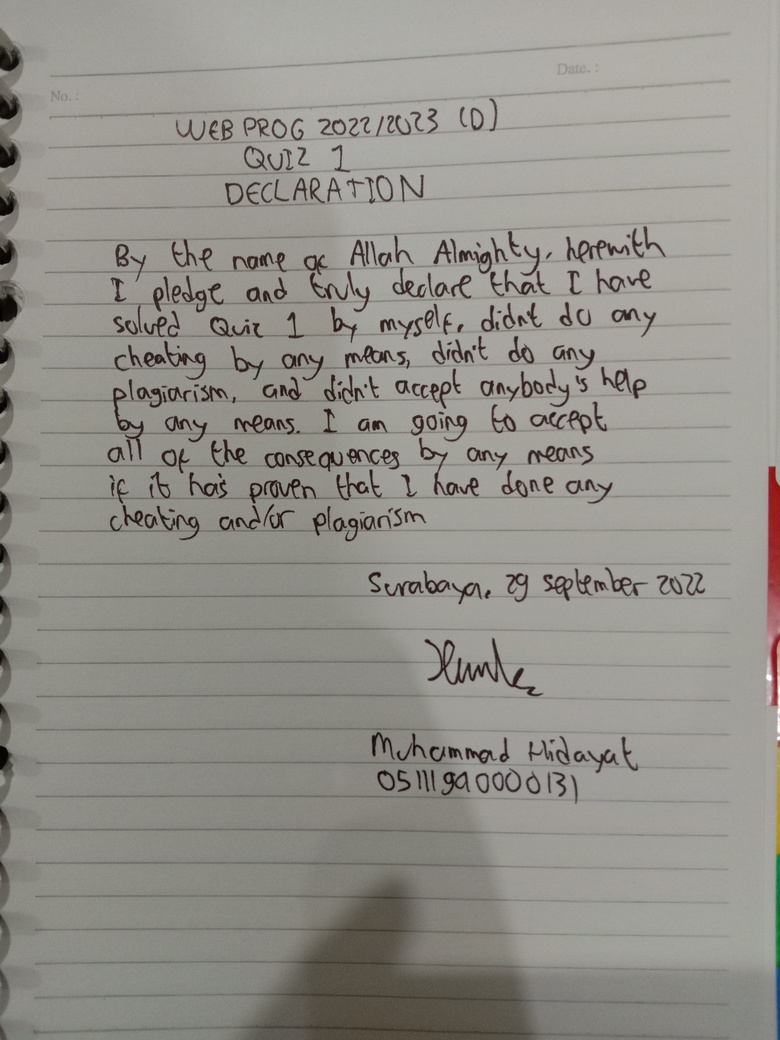 No. :
Date. :
WEB PROG 2022/2023 (D)
QUIZ 1
DECLARATION
By the name of Allah Almighty, herewith
I pledge and truly declare that I have
solved Quiz 1 by myself, didn't do any
cheating by any means, didn't do any
plagiarism, and didn't accept anybody's help
by any means. I am going to accept
all of the consequences by any means
if it has proven that I have done any
cheating and/or plagiarism
Surabaya, 29 september 2022
Muhammad Hidayat
05111940000131